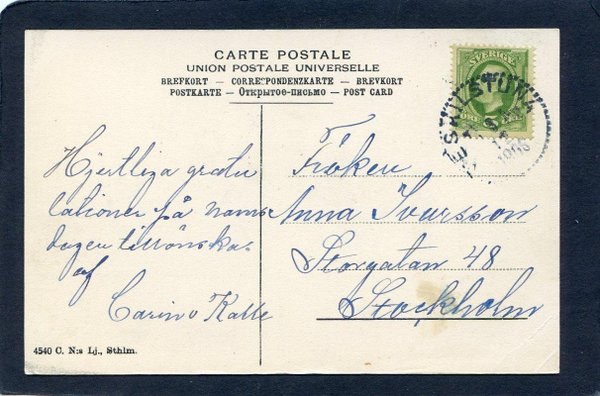 CARTE POSTALE
UNION POSTALE UNIVERSELLE
BREFKORT — CORRESPONDENZKARTE — BREVKORT
POSTKARTE — Открытое-письмо — POST CARD
SVERIGE
ESKILSTUNA
Hjertliga gratu
lationer på namns
dagen tillönskas
af
Carin o Kalle
Fröken
Anna Ivarsson
Storgatan 48
Stockholm
4540 C. N:s Lj., Sthlm.